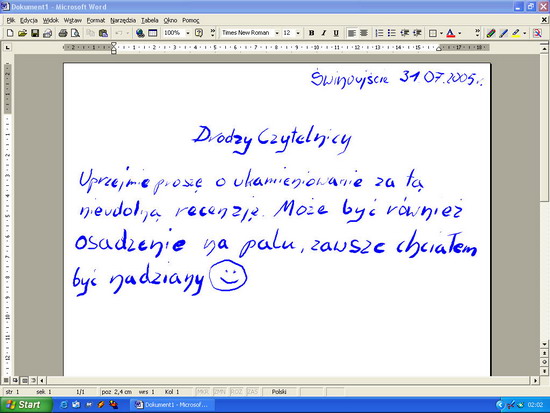 Dokument1 - Microsoft Word
Plik Edycja Widok Wstaw Format Narzędzia Tabela Okno Pomoc
100% Times New Roman 12 B
Świnoujście 31 07.2005r.
Drodzy Czytelnicy
Uprzejmie proszę o ukamieniowanie za tą
nieudolną recenzję. Może być również
osadzenie na palu, zawsze chciałem
być nadziany
str 1 sek 1 1/1 poz 2,4 cm wrs 1 Kol 1 MKR ZMN ROZ ZAS Polski
Start Dokument1 - Microsof... 02:02